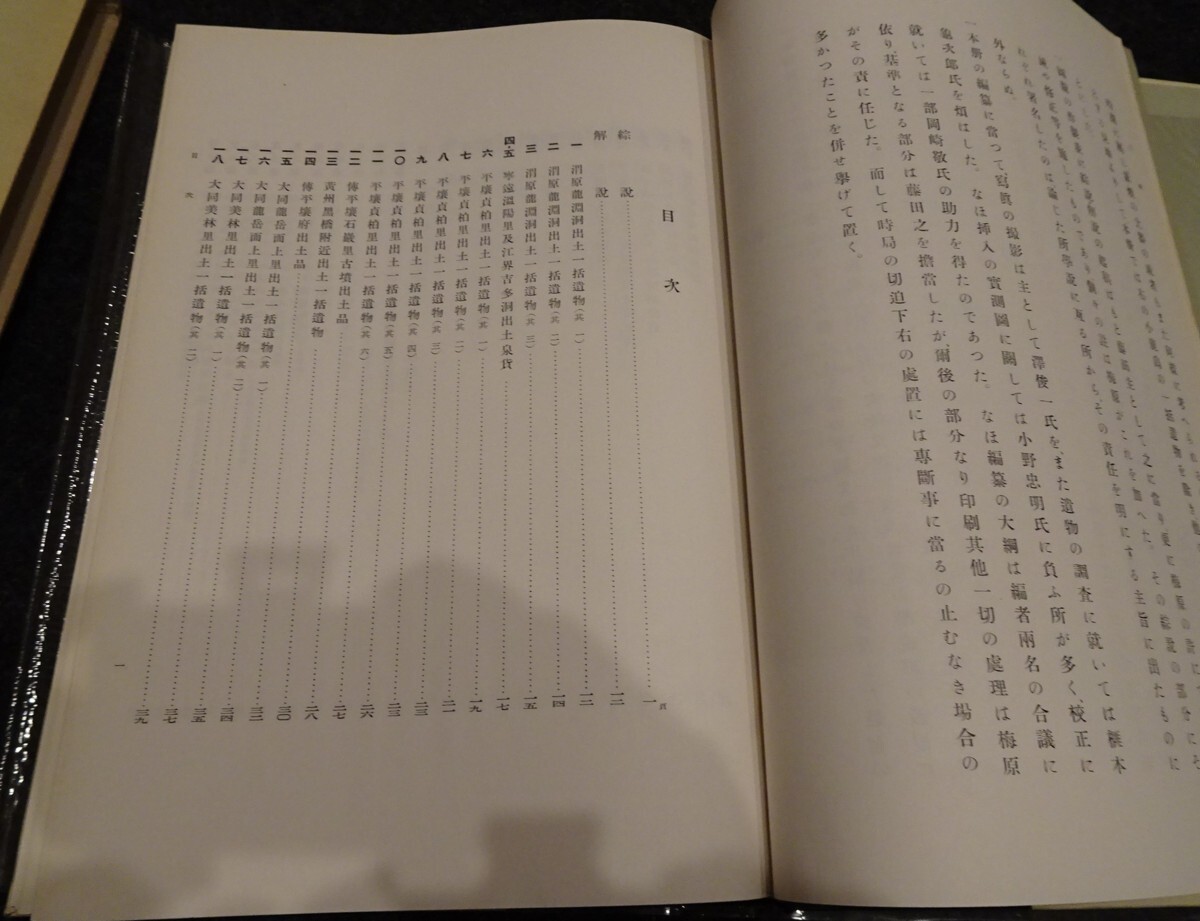 れぞれ署名したのは論じた所學説に亙る所からその責任を明にする主旨に出たものに
外ならぬ。
本册の編纂に當つて寫眞の撮影は主として澤俊一氏を、また遺物の調査に就いては榧本
龜次郎氏を煩はした。なほ挿入の實測圖に關しては小野忠明氏に負ふ所が多く、校正に
就いては一部岡崎敬氏の助力を得たのであつた。なほ編纂の大綱は編者兩名の合議に
依り、基準となる部分は藤田之を擔當したが、爾後の部分なり印刷其他一切の處理は梅原
がその責に任じた。而して時局の切迫下右の處置には專斷事に當るの止むなき場合の
多かつたことを併せ擧げて置く。
目次
綜説……一頁
解説……一二
一 渭原龍淵洞出土一括遺物(其一)……一二
二 渭原龍淵洞出土一括遺物(其二)……一四
三 渭原龍淵洞出土一括遺物(其三)……一五
四・五 寧遠溫陽里及江界吉多洞出土泉貨……一七
六 平壤貞柏里出土一括遺物(其一)……一九
七 平壤貞柏里出土一括遺物(其二)……二一
八 平壤貞柏里出土一括遺物(其三)……二三
九 平壤貞柏里出土一括遺物(其四)……二三
一〇 平壤貞柏里出土一括遺物(其五)……二六
一一 平壤貞柏里出土一括遺物(其六)……二七
一二 傳平壤石巖里古墳出土品……二八
一三 黃州黑橋附近出土一括遺物……三〇
一四 傳平壤府出土品……三三
一五 大同龍岳面上里出土一括遺物(其一)……三四
一六 大同龍岳面上里出土一括遺物(其二)……三五
一七 大同美林里出土一括遺物(其一)……三七
一八 大同美林里出土一括遺物(其二)……三九
目次
一